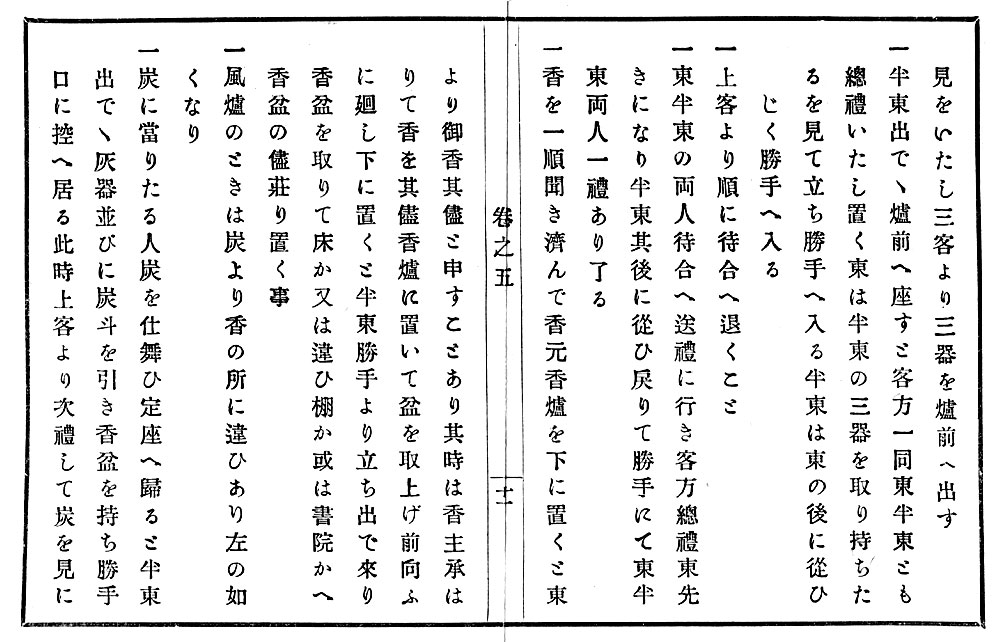 見をいたし三客より三器を爐前へ出す
一半東出でヽ爐前へ座すと客方一同東半東とも
總禮いたし置く東は半東の三器を取り持ちた
るを見て立ち勝手へ入る半東は東の後に從ひ
じく勝手へ入る
一上客より順に待合へ退くこと
一東半東の両人待合へ送禮に行き客方總禮東先
きになり半東其後に從ひ戻りて勝手にて東半
東両人一禮あり了る
一香を一順聞き濟んで香元香爐を下に置くと東
卷之五
十一
より御香其儘と申すことあり其時は香主承は
りて香を其儘香爐に置いて盆を取上げ前向ふ
に廻し下に置くと半東勝手より立ち出で來り
香盆を取りて床か又は違ひ棚か或は書院かへ
香盆の儘莊り置く事
一風爐のときは炭より香の所に違ひあり左の如
くなり
一炭に當りたる人炭を仕舞ひ定座へ歸ると半東
出でヽ灰器並びに炭斗を引き香盆を持ち勝手
口に控へ居る此時上客より次禮して炭を見に